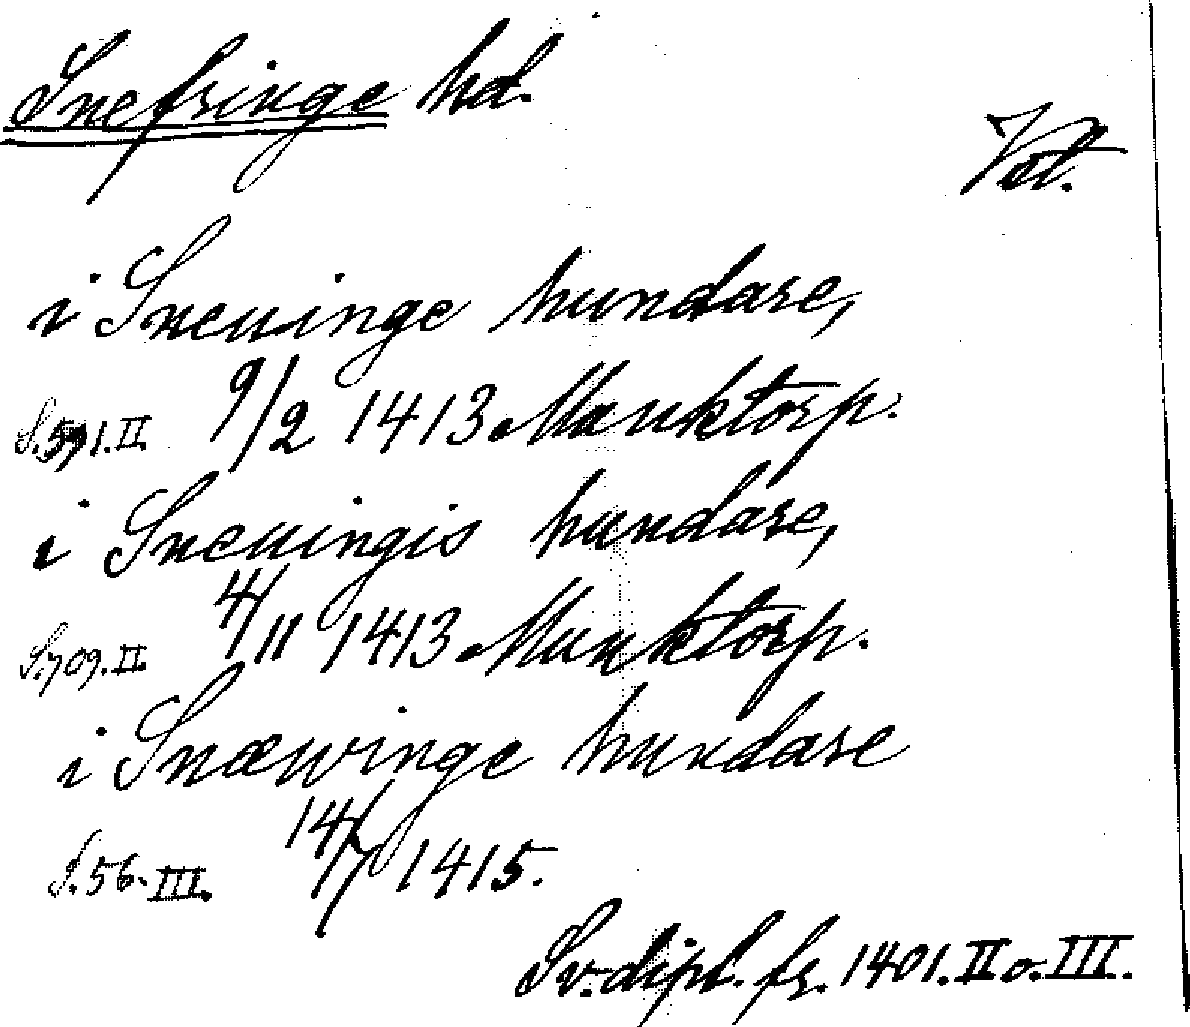 Snefringe hd.
Vstl.
i Sneuinge hundare,
S.591.II. 9/2 1413 Munktorp.
i Sneuingis hundare,
S.709.II. 4/11 1413 Munktorp.
i Snæwinge hundare
S.56.III. 14/7 1415.
Sv. dipl. fr. 1401. II o. III.